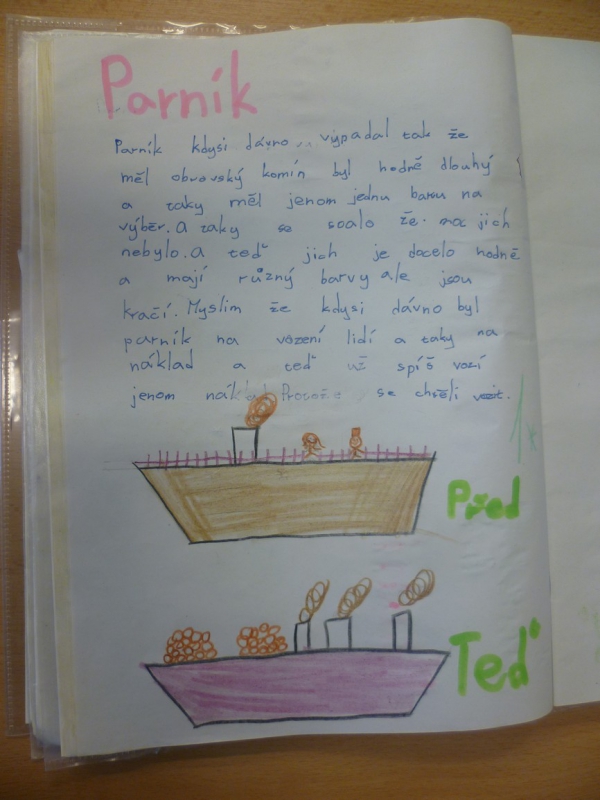 Parník
Parník kdysi dávno vypadal tak že
měl obrovský komín byl hodně dlouhý
a taky měl jenom jednu barvu na
výběr. A taky se stalo že moc jich
nebylo. A teď jich je docelo hodně
a mají různý barvy ale jsou
kračí. Myslim že kdysi dávno byl
parník na vožení lidí a taky na
náklad a teď už spíš vozí
jenom náklad Protože se chtěli vozit.
Před
Teď